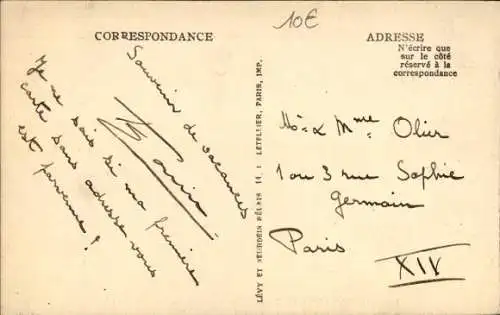 10€
CORRESPONDANCE
Souvenir de vacances
Je ne sais si ma première
carte sans adresse vous
est parvenue !
LÉVY ET NEURDEIN RÉUNIS 44, R. LETELLIER, PARIS, IMP.
ADRESSE
N'écrire que
sur le côté
réservé à la
correspondance
Mr & Mme Olier
1 ou 3 rue Sophie
Germain
Paris
XIV